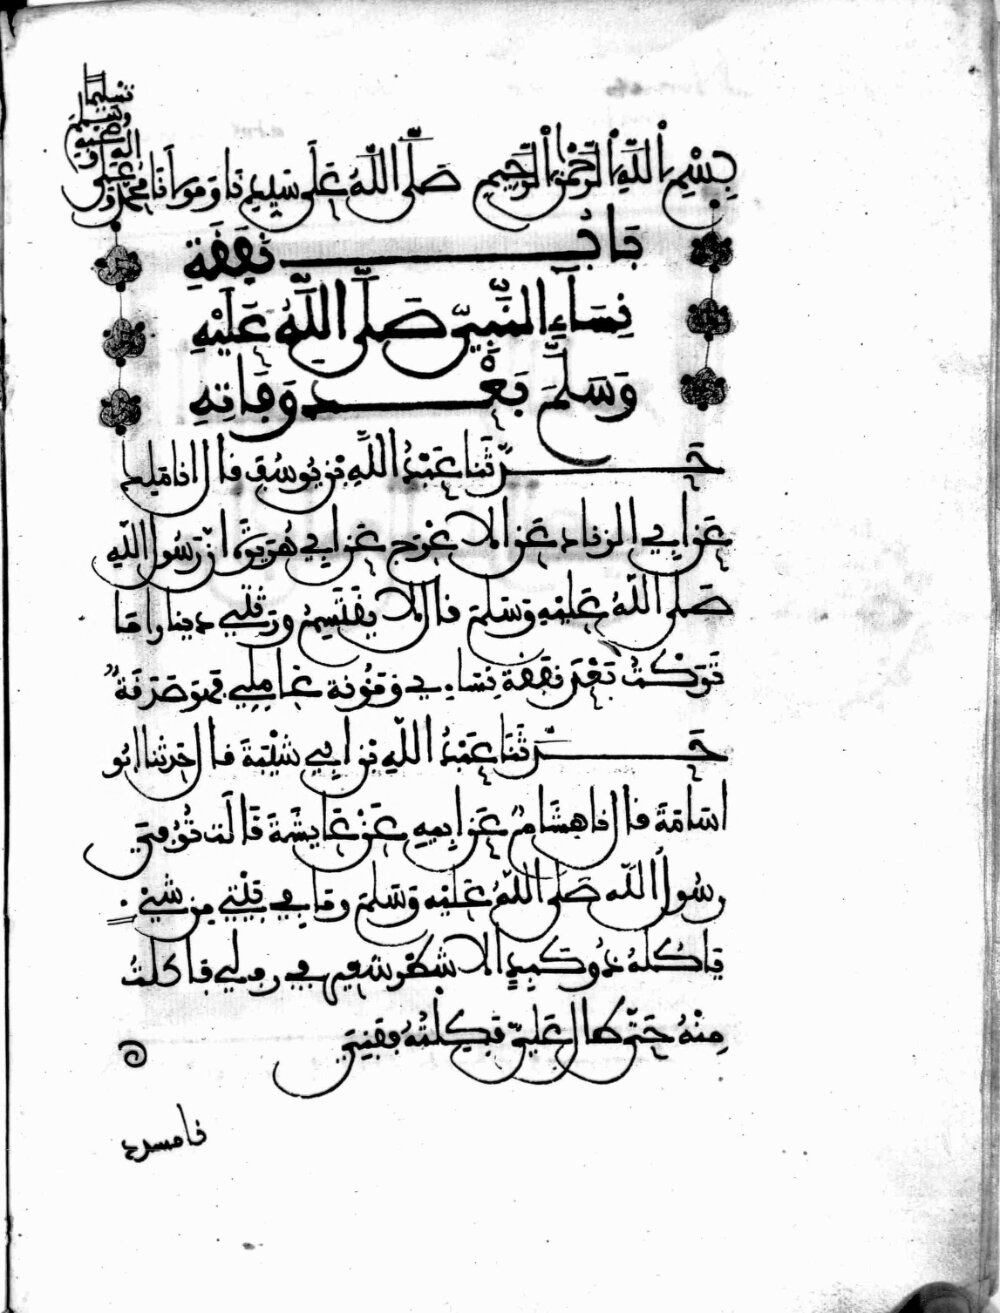 بِسْمِ اللَّهِ الرَّحْمَنِ الرَّحِيمِ صَلَّى اللَّهُ عَلَى سَيِّدِنَا وَمَوْلَانَا مُحَمَّدٍ وَعَلَى ءالِهِ وَصَحْبِهِ وَسَلَّمَ تَسْلِيمًا
بَابُ نَفَقَةِ
نِسَاءِ النَّبِيِّ صَلَّى اللَّهُ عَلَيْهِ
وَسَلَّمَ بَعْدَ وَفَاتِهِ
حَدَّثَنَا عَبْدُ اللَّهِ بْنُ يُوسُفَ قَالَ أنا مَالِكٌ
عَنْ أَبِي الزِّنَادِ عَنِ الْأَعْرَجِ عَنْ أَبِي هُرَيْرَةَ أَنَّ رَسُولَ اللَّهِ
صَلَّى اللَّهُ عَلَيْهِ وَسَلَّمَ قَالَ لَا يَقْتَسِمُ وَرَثَتِي دِينَارًا مَا
تَرَكْتُ بَعْدَ نَفَقَةِ نِسَاءِي وَمَئُونَةِ عَامِلِي فَهْوَ صَدَقَةٌ
حَدَّثَنَا عَبْدُ اللَّهِ بْنُ أَبِي شَيْبَةَ قَالَ حَدَّثَنَا أَبُو
أُسَامَةَ قَالَ نا هِشَامٌ عَنْ أَبِيهِ عَنْ عَائِشَةَ قَالَتْ تُوُفِّيَ
رَسُولُ اللَّهِ صَلَّى اللَّهُ عَلَيْهِ وَسَلَّمَ وَمَا فِي بَيْتِي مِنْ شَيْءٍ
يَأْكُلُهُ ذُو كَبِدٍ إِلَّا شَطْرُ شَعِيرٍ فِي رَفٍّ لِي فَأَكَلْتُ
مِنْهُ حَتَّى طَالَ عَلَيَّ فَكِلْتُهُ فَفَنِيَ
نا مسدد